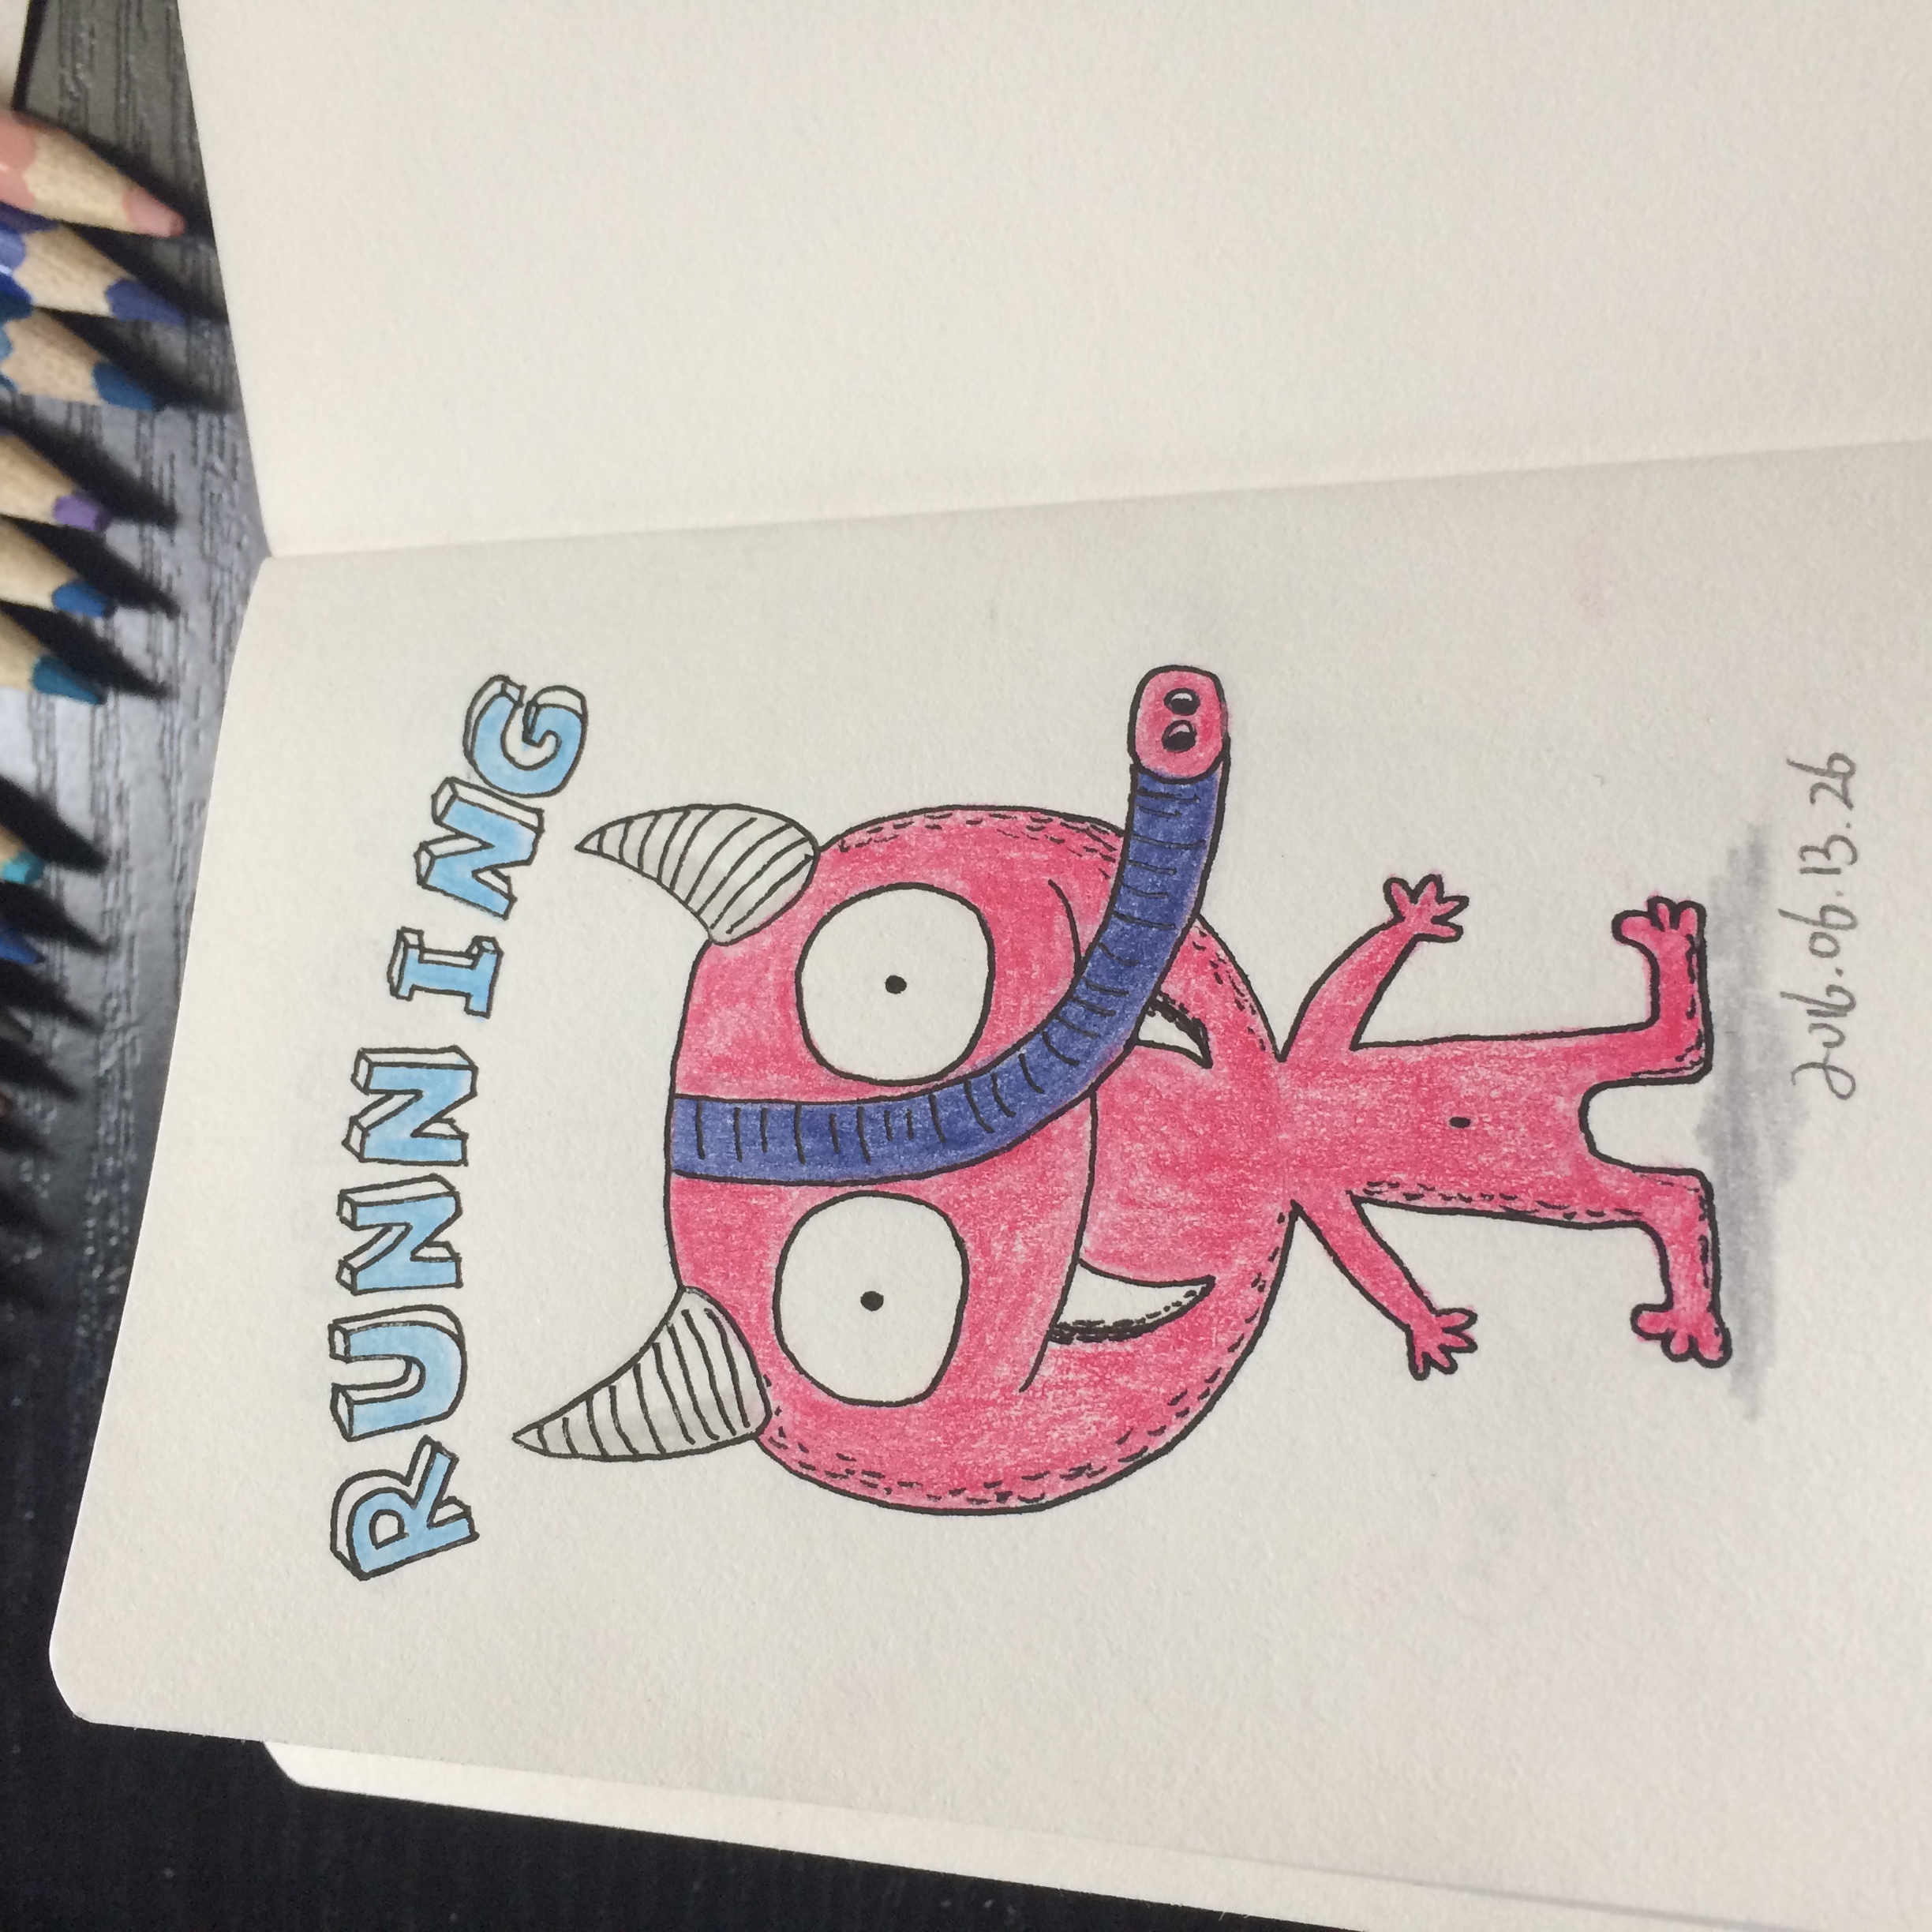 RUNNING
2016.06.13.26